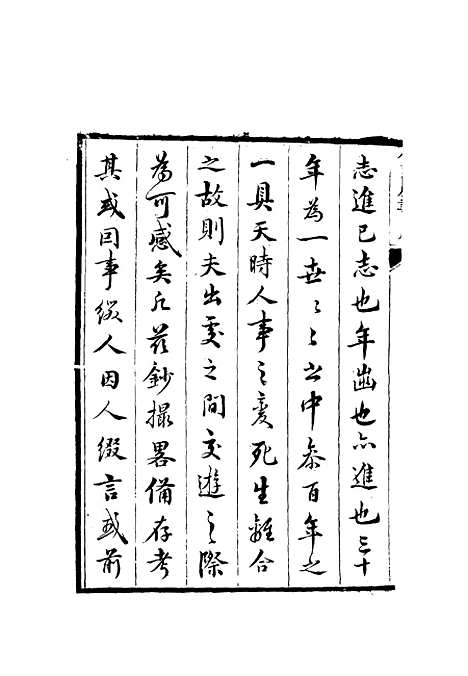 志進已志也年齒也亦進也三十
年為一世〻之中參百年之
一具天時人事之變死生離合
之故則夫出處之間交遊之際
為可感矣凡茲鈔撮畧備存考
其或因事綴人因人綴言或前